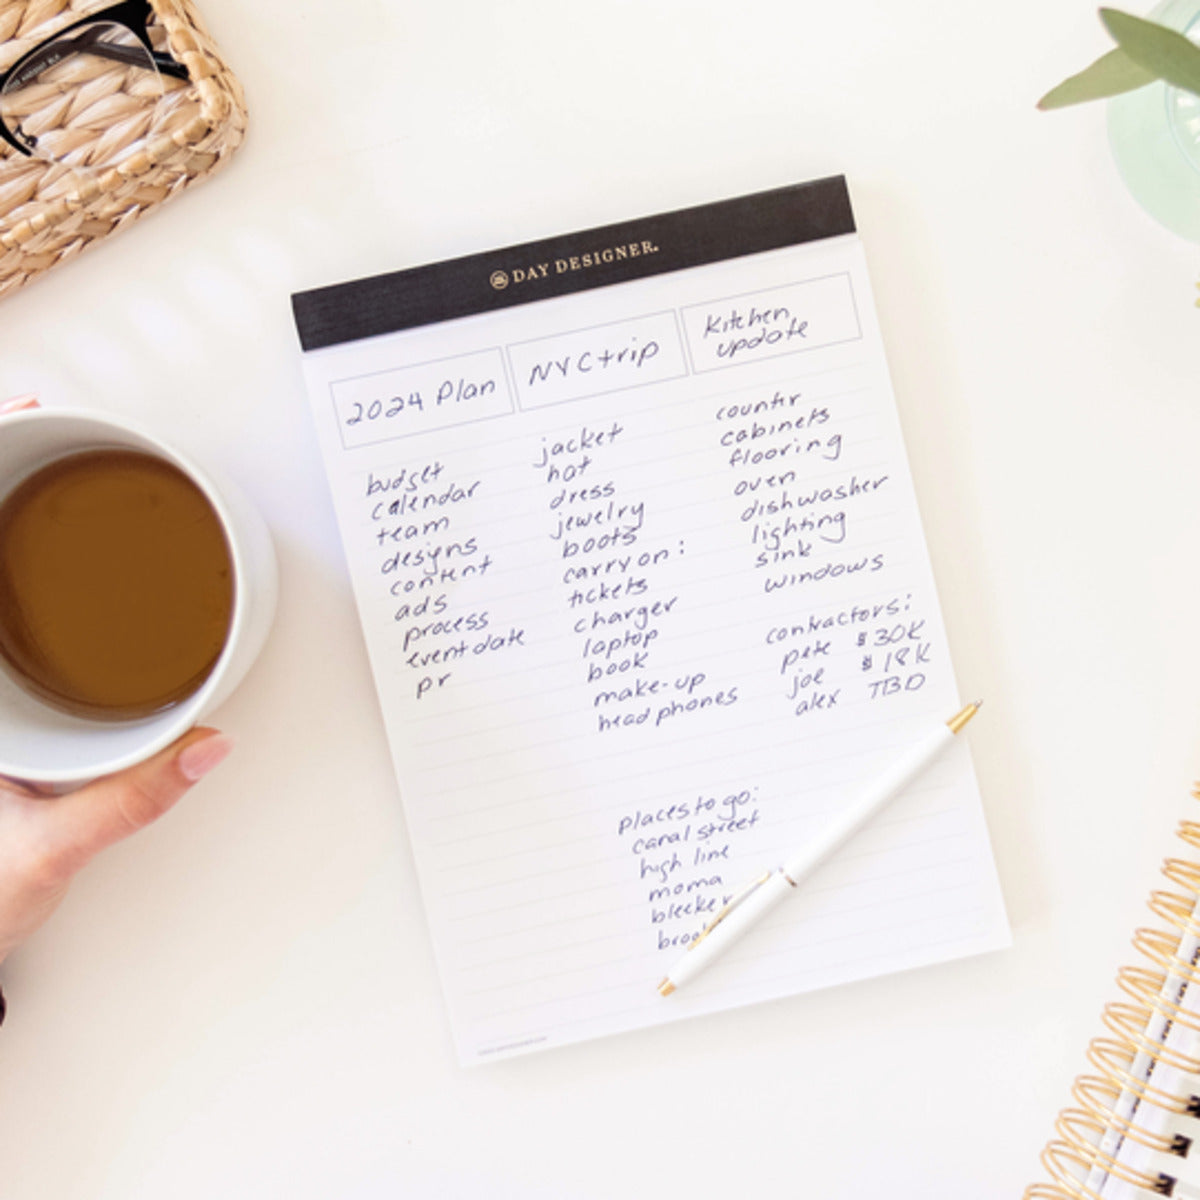 DAY DESIGNER.
2024 Plan
budget
calendar
team
designs
content
ads
process
event date
pr
NYC trip
jacket
hat
dress
jewelry
boots
carry on:
tickets
charger
laptop
book
make-up
headphones
places to go:
canal street
high line
moma
bleeker
Kitchen
update
counter
cabinets
flooring
oven
dishwasher
lighting
sink
windows
contractors:
pete $30K
joe $18K
alex TBD